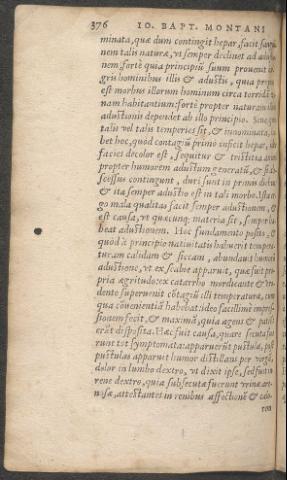 376 IO. BAPT. MONTANI
minata, quæ dum contingit hepar, facit
nem talis naturæ, ut semper declinet ad
nem: fortè quia principiũ suum prouenit
gris hominibus illis & adustis, quia
est morbus illorum hominum circa torridã
nam habitantium: fortè propter naturam
adustionis dependet ab illo principio. Siue
talis uel talis temperies sit, & innominata,
bet hoc, quòd contagiũ primò inficit hepar,
facies decolor est, sequitur & tristitia
propter humorem adustum generatũ, &
scessus contingunt, duri sunt in primis
& ita semper adustio est in tali morbo.
go mala qualitas facit semper adustionem, &
est causa, ut quæcunq; materia sit, semper
beat adustionem. Hoc fundamento posito,
quòd à principio natiuitatis habuerit
turam calidam & siccam, abundauit
adustione, ut ex scabie apparuit, quæ fuit
pria ægritudo: ex catarrho mordicante &
dente superuenit cõtagiũ illi temperaturæ, cum
qua cõuenientiã habebat: ideo facillimè
sionem fecit, & maximã, quia agens &
erãt disposita. Hac fuit causa, quare
runt tot symptomata: apparuerũt pustulæ,
pustulas apparuit humor distillans per
dolor in lumbo dextro, ut dixit ipse, sed fuit in
rene dextro, quia subsecutæ fuerunt urinæ
nosæ, attestantes in renibus affectionẽ &